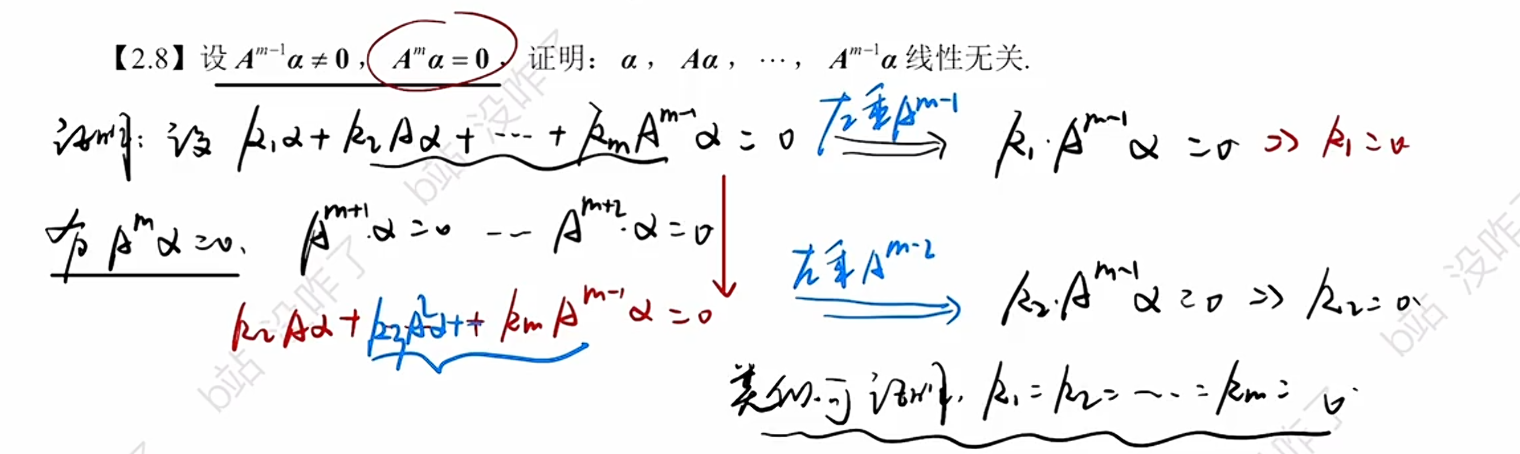 【2.8】设 A^{m-1}α≠0, A^mα=0, 证明: α, Aα, ⋯, A^{m-1}α 线性无关.
证明: 设 k₁α+k₂Aα+⋯+k_mA^{m-1}α=0 左乘A^{m-1} ⇒ k₁·A^{m-1}α=0 ⇒ k₁=0
有 A^mα=0. A^{m+1}·α=0 ⋯ A^{m+2}·α=0
k₂Aα+k₃A²α+⋯+k_mA^{m-1}α=0 左乘A^{m-2} ⇒ k₂·A^{m-1}α=0 ⇒ k₂=0.
类似可证明, k₁=k₂=⋯=k_m=0.
b站 没咋了
b站 没咋了
b站 没咋了
b站 没咋了